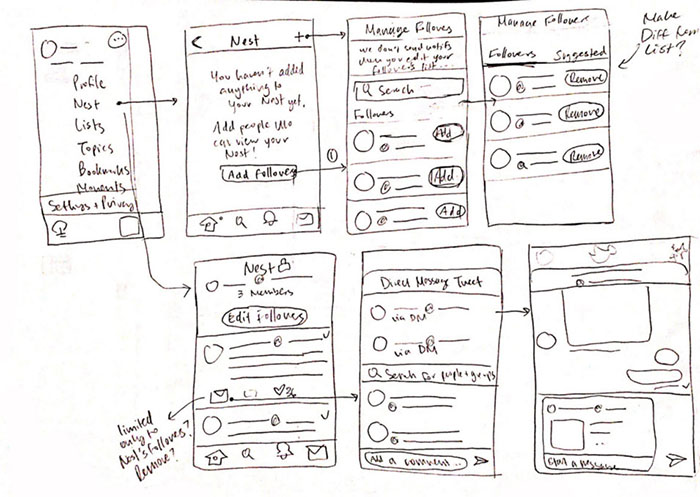 Profile
Nest
Lists
Topics
Bookmarks
Moments
Settings + Privacy
Nest
You haven't added
anything to
your Nest yet.
Add people who
can view your
Nest!
Add Followers
1
Manage Followers
we don't send notifs
when you edit your
followers list...
Search
Followers
Add
Add
Add
Manage Followers
Followers Suggested
Remove
Remove
Remove
Make
Diff from
List?
Nest
3 Members
Edit Followers
36
limited
only to
Nest's Followers?
Remove?
Direct Message Tweet
via DM
via DM
Search for people + groups
Add a comment...
Start a message